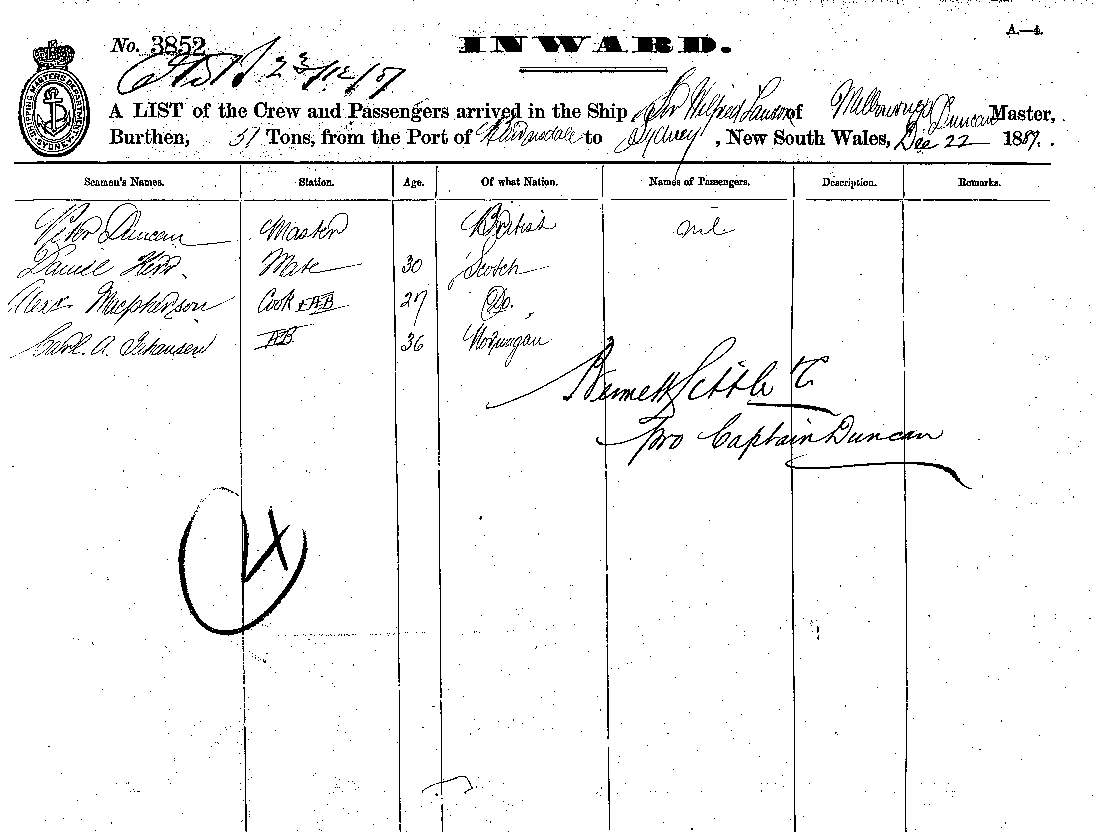 A.—4.
No. 3852
INWARD.
23/12/87
A LIST of the Crew and Passengers arrived in the Ship Sir Wilfred Lawson of Melbourne, Duncan Master,
Burthen, 57 Tons, from the Port of Bairnsdale to Sydney, New South Wales, Dec 22 1887.
SHIPPING MASTER'S DEPARTMENT SYDNEY
Seamen's Names. Station. Age. Of what Nation. Names of Passengers. Description. Remarks.
Peter Duncan Master British nil
Daniel Kerr Mate 30 Scotch
Alex Macpherson Cook & AB 27 Do.
Carl. A. Johansen AB 36 Norwegan
Bennett
pro Captain Duncan
4